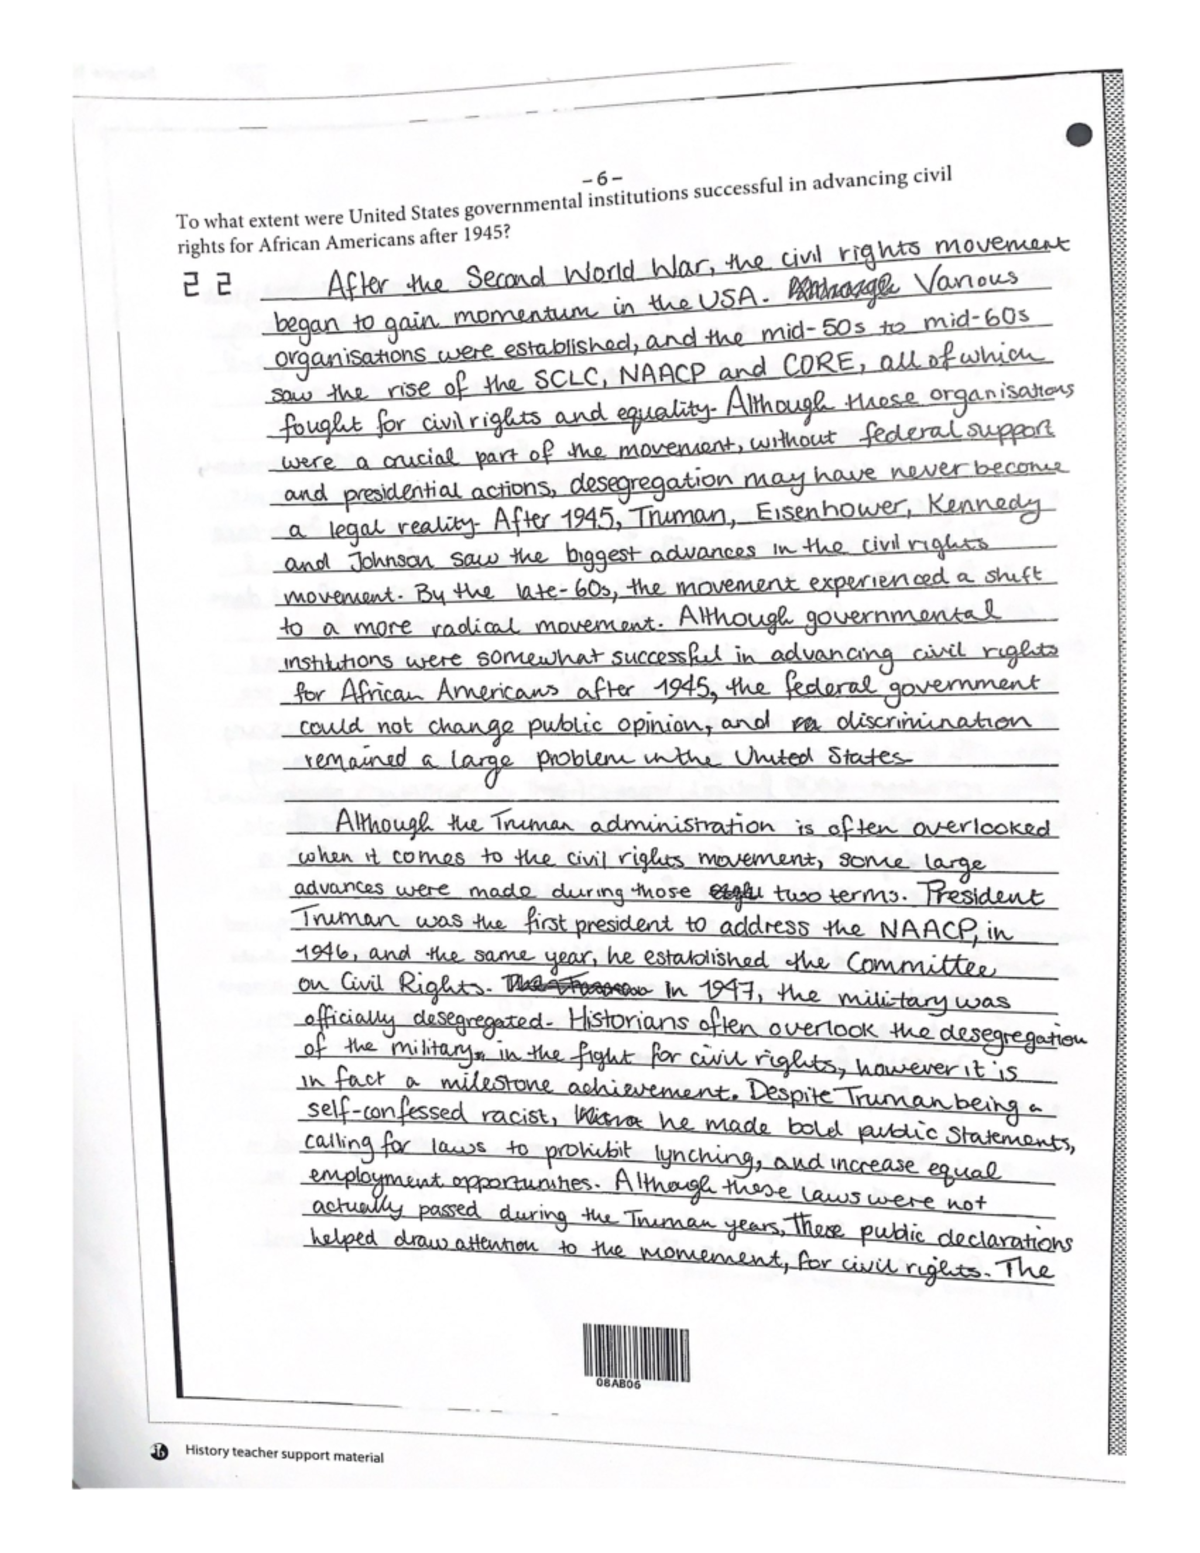 -6-
To what extent were United States governmental institutions successful in advancing civil
rights for African Americans after 1945?
22 After the Second World War, the civil rights movement
began to gain momentum in the USA. Although Various
organisations were established, and the mid-50s to mid-60s
saw the rise of the SCLC, NAACP and CORE, all of which
fought for civil rights and equality. Although these organisations
were a crucial part of the movement, without federal support
and presidential actions, desegregation may have never become
a legal reality. After 1945, Truman, Eisenhower, Kennedy
and Johnson saw the biggest advances in the civil rights
movement. By the late-60s, the movement experienced a shift
to a more radical movement. Although governmental
institutions were somewhat successful in advancing civil rights
for African Americans after 1945, the federal government
could not change public opinion, and discrimination
remained a large problem in the United States.
Although the Truman administration is often overlooked
when it comes to the civil rights movement, some large
advances were made during those two terms. President
Truman was the first president to address the NAACP, in
1946, and the same year, he established the Committee
on Civil Rights. In 1947, the military was
officially desegregated. Historians often overlook the desegregation
of the military, in the fight for civil rights, however it is
in fact a milestone achievement. Despite Truman being a
self-confessed racist, he made bold public statements,
calling for laws to prohibit lynching, and increase equal
employment opportunities. Although these laws were not
actually passed during the Truman years, these public declarations
helped draw attention to the momement, for civil rights. The
08AB06
History teacher support material